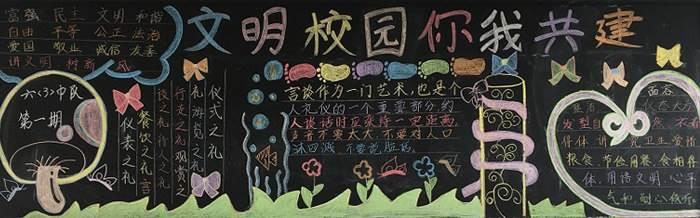 富强 民主 文明 和谐
自由 平等 公正 法治
爱国 敬业 诚信 友善
讲文明 树新
文明校园你我共建
六(3)中队
第一期
仪式之礼
礼 游览之礼
行走之礼 观赏之
谈之礼 待人之礼
餐饮之礼 言
仪表之礼
言谈作为一门艺术，也是个
人礼仪的一个重要部分，约
人谈话时应保持一定距离
声音不要太大，不要对人口
沫四溅，不要
面容
仪态大方
发型自
得体 讲究卫生 爱惜
粮食 节俭用餐 食相
体，用语文明，心平
气和，耐心